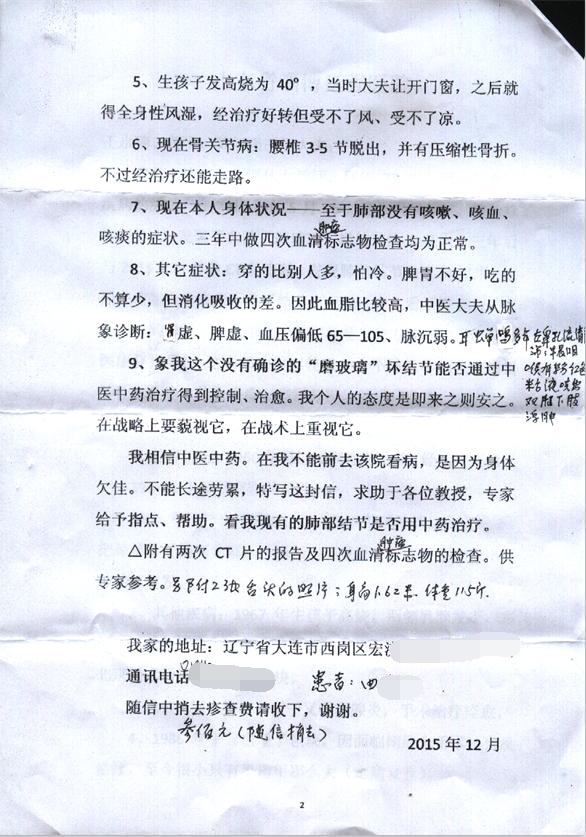 5、生孩子发高烧为 40°，当时大夫让开门窗，之后就
得全身性风湿，经治疗好转但受不了风、受不了凉。
6、现在骨关节病：腰椎 3-5 节脱出，并有压缩性骨折。
不过经治疗还能走路。
7、现在本人身体状况——至于肺部没有咳嗽、咳血、
咳痰的症状。三年中做四次血清肿瘤标志物检查均为正常。
8、其它症状：穿的比别人多，怕冷。脾胃不好，吃的
不算少，但消化吸收的差。因此血脂比较高，中医大夫从脉
象诊断：肾虚、脾虚、血压偏低 65—105、脉沉弱。耳虫单鸣多年左鼻孔流清
早晨咽
喉有粉红色
粘液
双脚下肢
浮肿
9、象我这个没有确诊的“磨玻璃”坏结节能否通过中
医中药治疗得到控制、治愈。我个人的态度是即来之则安之。
在战略上要藐视它，在战术上重视它。
我相信中医中药。在我不能前去该院看病，是因为身体
欠佳。不能长途劳累，特写这封信，求助于各位教授，专家
给予指点、帮助。看我现有的肺部结节是否用中药治疗。
△附有两次 CT 片的报告及四次血清肿瘤标志物的检查。供
专家参考。另附付2张舌头的照片；身高1.62米 体重115斤
我家的地址：辽宁省大连市西岗区宏
通讯电话 患者：曲
随信中捎去诊查费请收下，谢谢。
叁佰元（随信捎去）
2015 年 12 月
2